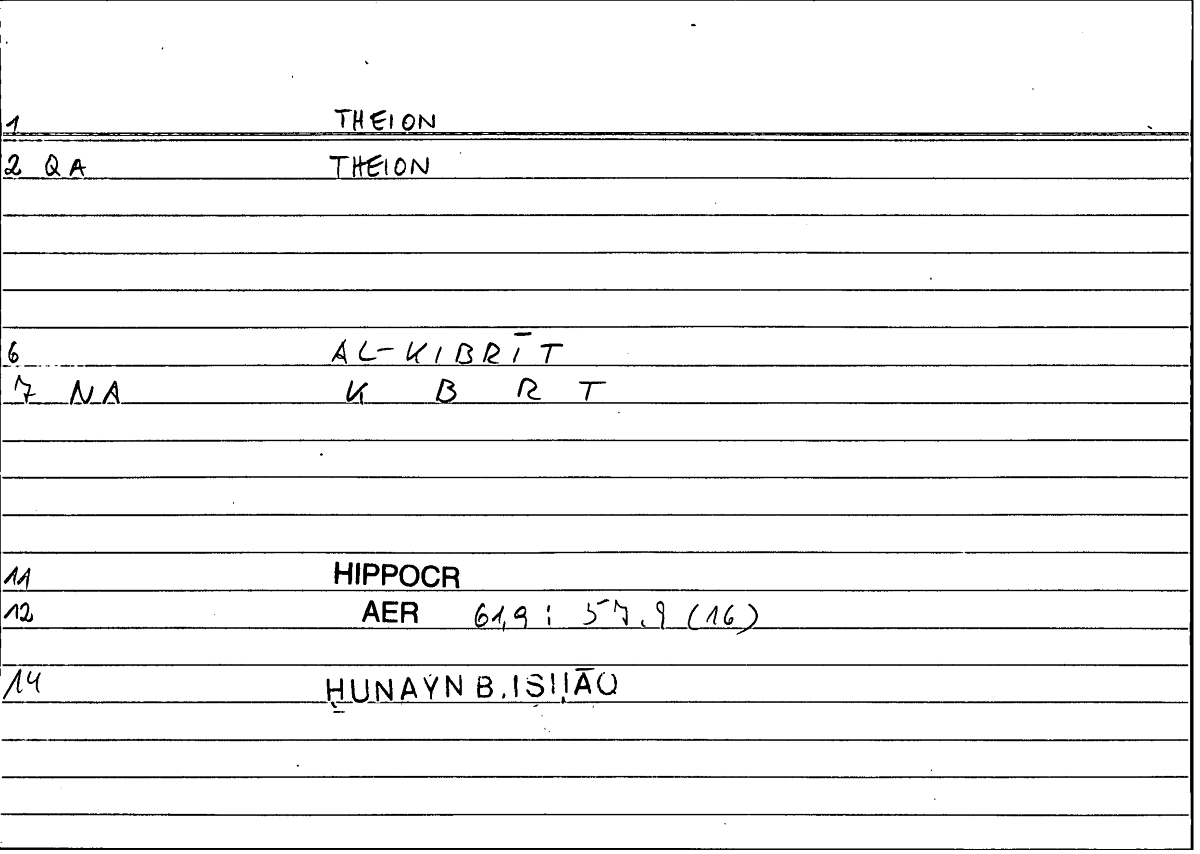 1 THEION
2 QA THEION
6 AL-KIBRĪT
7 NA K B R T
11 HIPPOCR
12 AER 61,9 : 57.9 (16)
14 ḤUNAYN B. ISḤĀQ